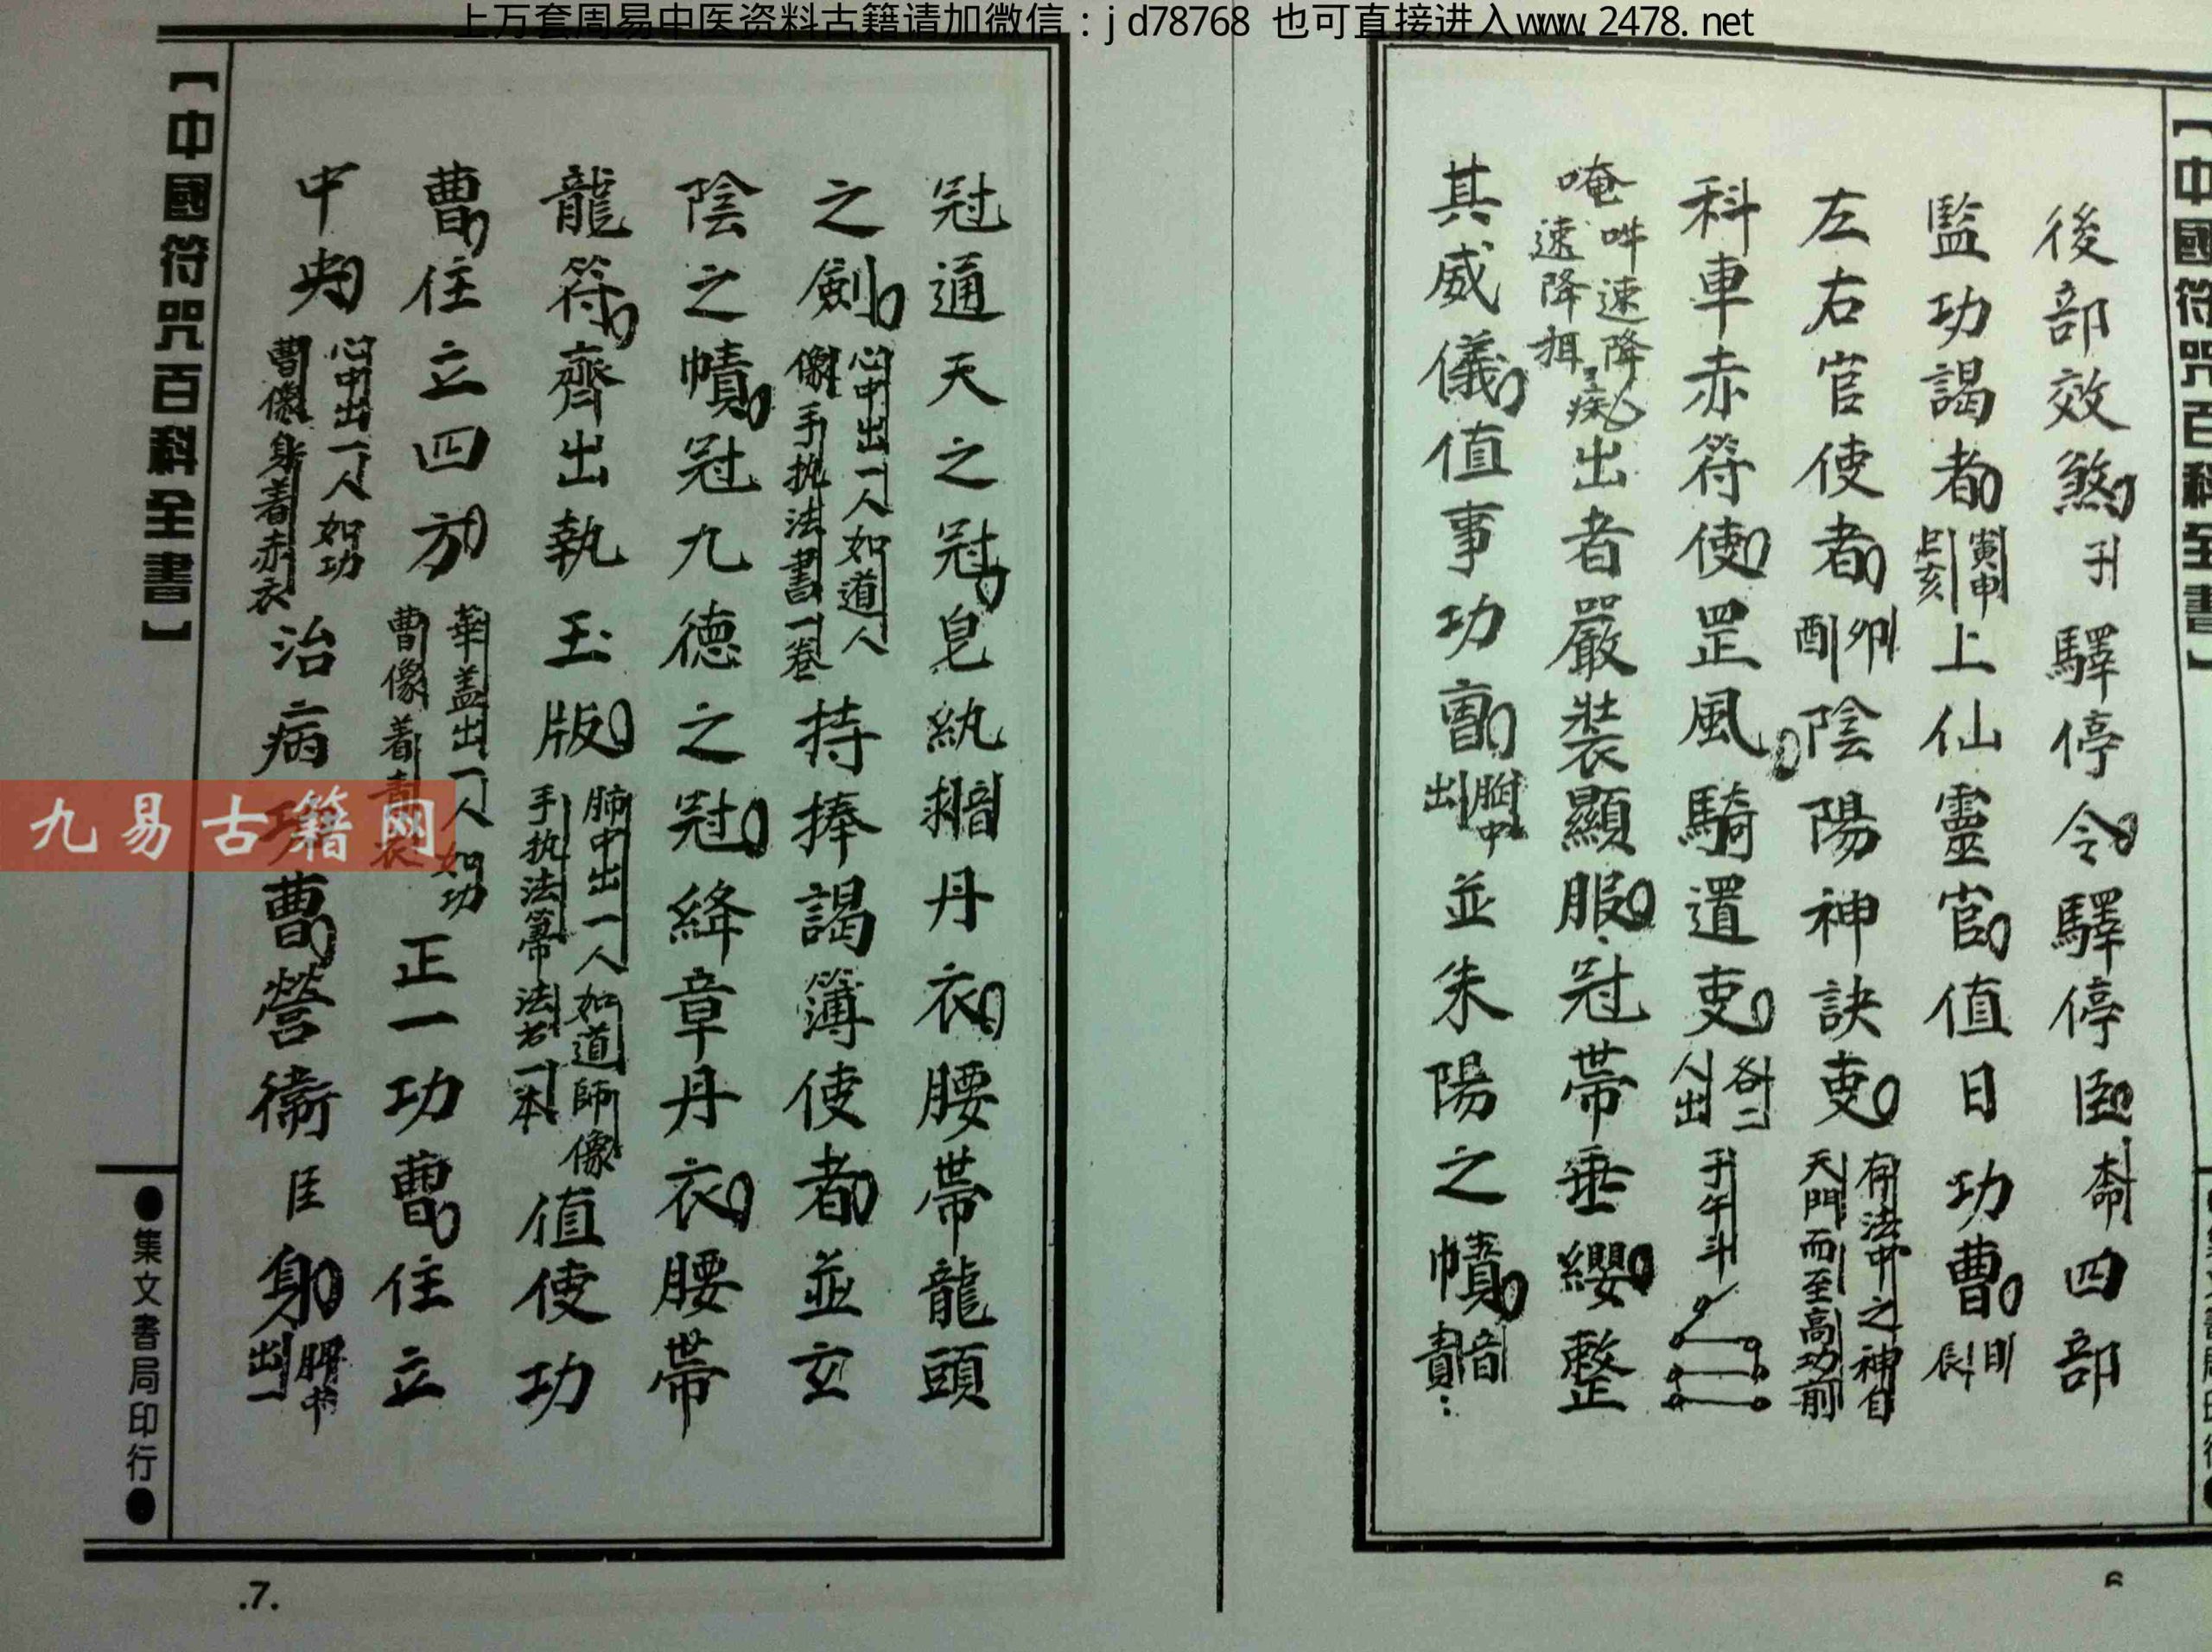 上万套周易中医资料古籍请加微信：jd78768 也可直接进入www.2478.net
後部效煞 子 驛停令驛停臣 四部
監功謁者 寅申巳亥 上仙靈官值日功曹 辰
左右官使者 卯酉 陰陽神訣吏 存法中之神自天門而至高功前
科車赤符使罡風騎置吏 各二人出 子午斗
唵吽速降速降 出者嚴裝顯服冠帶垂纓整
其威儀值事功曹 胸中出 並朱陽之幘 音責
6
【中國符咒百科全書】
冠通天之冠皂紈 丹衣腰帶龍頭
之劍 心中出一人如道人像手执法書一卷 持捧謁簿使者並玄
陰之幘冠九德之冠絳章丹衣腰帶
龍符齊出執玉版 肺中出一人如道師像手执法 一本 值使功
曹住立四方 華盖出一人如功曹像着青衣 正一功曹住立
中央 心中出一人如功曹像身着赤衣 治病功曹營衞臣身 中出一
【中國符咒百科全書】
●集文書局印行●
.7.
九易古籍网